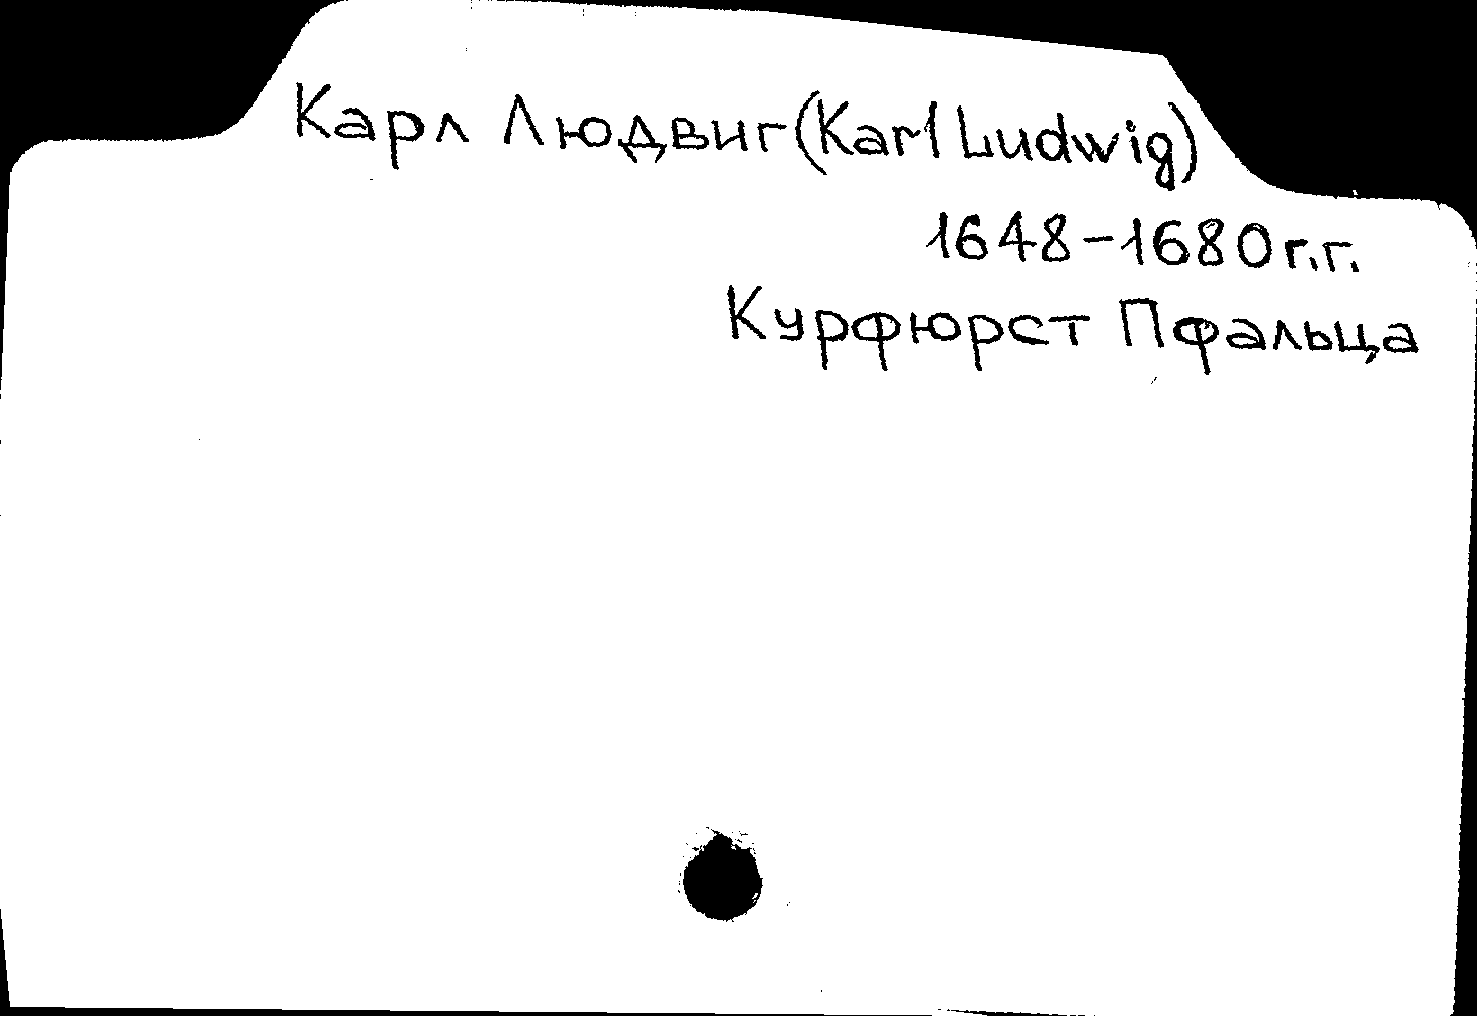 Карл Людвиг (Karl Ludwig)
1648-1680 г.г.
Курфюрст Пфальца